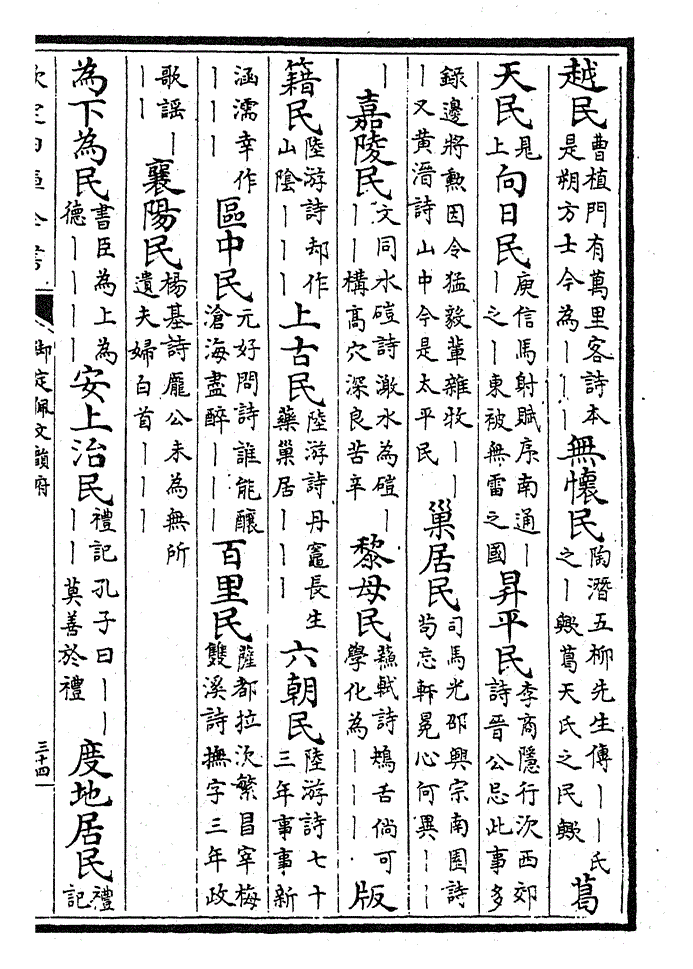 越民曹植門有萬里客詩本是朔方士今為丨丨無懷民陶潛五柳先生傳丨丨氏之丨歟葛天氏之民歟葛
天民見上向日民庾信馬射賦序南通丨丨之丨東被無雷之國昇平民李商隱行次西郊詩晉公忌此事多
錄邊將勲因令猛毅輩雜牧丨丨丨又黃溍詩山中今是太平民巢居民司馬光邵興宗南園詩苟忘軒冕心何異丨丨丨
嘉陵民文同水磑詩激水為磑丨丨丨構高穴深良苦辛黎母民蘇軾詩鴂舌倘可學化為丨丨丨版
籍民陸游詩却作山陰丨丨丨上古民陸游詩丹竈長生藥巢居丨丨丨六朝民陸游詩七十三年事事新
涵濡幸作丨丨丨區中民元好問詩誰能釀滄海盡醉丨丨丨百里民薩都拉次繁昌宰梅雙溪詩撫字三年政
歌謠丨丨丨襄陽民楊基詩龐公未為無所遺夫婦白首丨丨丨
為下為民書臣為上為德丨丨丨丨安上治民禮記孔子曰丨丨丨丨莫善於禮度地居民禮記
欽定四庫全書
御定佩文韻府
三十四